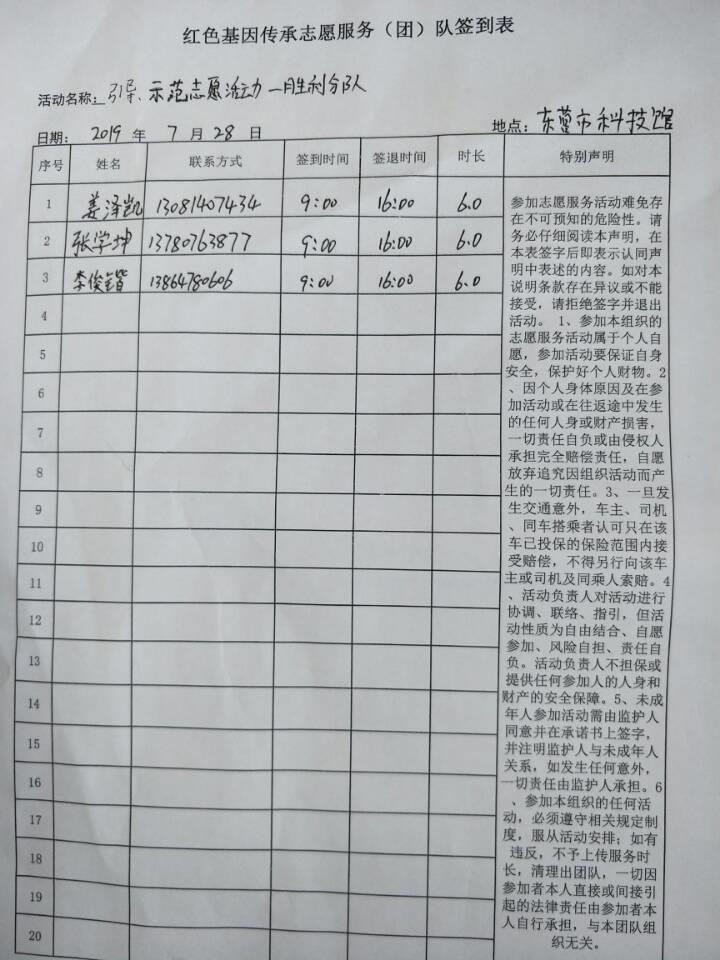 红色基因传承志愿服务（团）队签到表
活动名称：引导、示范志愿活动—胜利分队
日期： 2019 年 7 月 28 日 地点：东营市科技馆
序号 姓名 联系方式 签到时间 签退时间 时长 特别声明
1 姜泽凯 13081407434 9:00 16:00 6.0
2 张学坤 13780763877 9:00 16:00 6.0
3 李俊锴 13864780606 9:00 16:00 6.0
4
5
6
7
8
9
10
11
12
13
14
15
16
17
18
19
20
参加志愿服务活动难免存
在不可预知的危险性。请
务必仔细阅读本声明，在
本表签字后即表示认同声
明中表述的内容。如对本
说明条款存在异议或不能
接受，请拒绝签字并退出
活动。 1、参加本组织的
志愿服务活动属于个人自
愿，参加活动要保证自身
安全，保护好个人财物。2
、因个人身体原因及在参
加活动或在往返途中发生
的任何人身或财产损害，
一切责任自负或由侵权人
承担完全赔偿责任，自愿
放弃追究因组织活动而产
生的一切责任。3、一旦发
生交通意外，车主、司机
、同车搭乘者认可只在该
车已投保的保险范围内接
受赔偿，不得另行向该车
主或司机及同乘人索赔。4
、活动负责人对活动进行
协调、联络、指引，但活
动性质为自由结合、自愿
参加、风险自担、责任自
负。活动负责人不担保或
提供任何参加人的人身和
财产的安全保障。5、未成
年人参加活动需由监护人
同意并在承诺书上签字，
并注明监护人与未成年人
关系，如发生任何意外，
一切责任由监护人承担。6
、参加本组织的任何活
动，必须遵守相关规定制
度，服从活动安排；如有
违反，不予上传服务时
长，清理出团队，一切因
参加者本人直接或间接引
起的法律责任由参加者本
人自行承担，与本团队组
织无关。